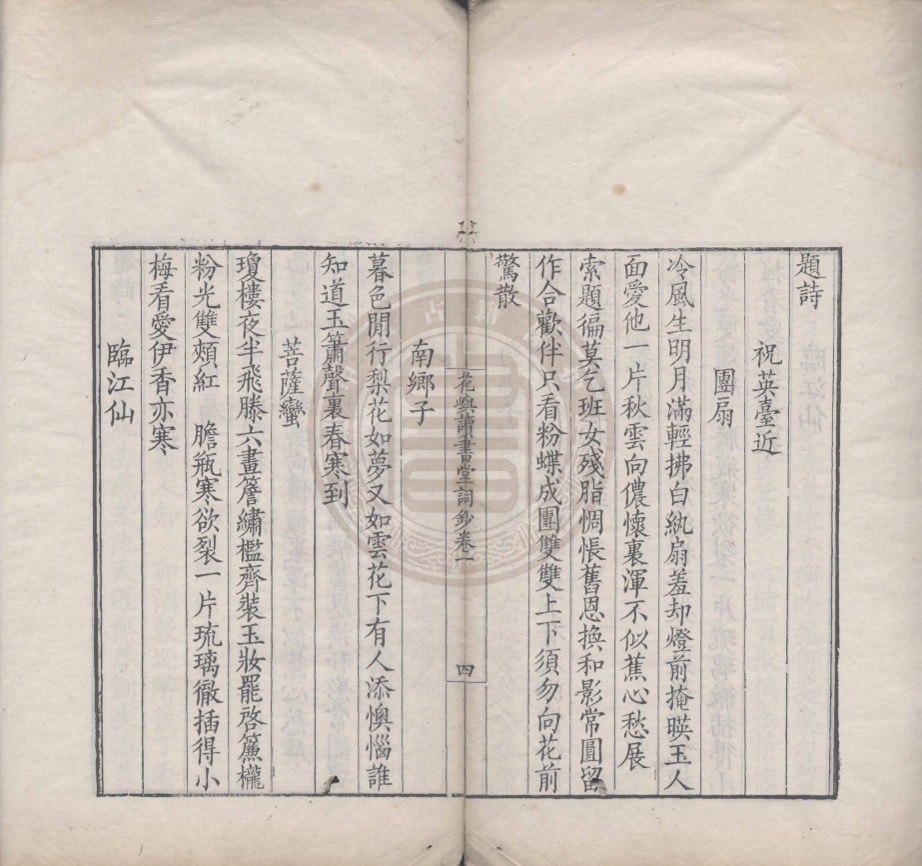 題詩
祝英臺近
團扇
冷風生明月滿輕拂白紈扇羞却燈前掩暎玉人
面愛他一片秋雲向儂懷裏渾不似蕉心愁展
索題徧莫乞班女殘脂惆悵舊恩換和影常圓留
作合歡伴只看粉蝶成團雙雙上下須勿向花前
驚散
花嶼讀書堂詞鈔卷一
四
南鄉子
暮色閒行梨花如夢又如雲花下有人添懊惱誰
知道玉簫聲裏春寒到
菩薩蠻
瓊樓夜半飛滕六畫簷繡檻齊裝玉妝罷啓簾櫳
粉光雙頰紅　膽瓶寒欲裂一片琉璃徹插得小
梅看愛伊香亦寒
臨江仙